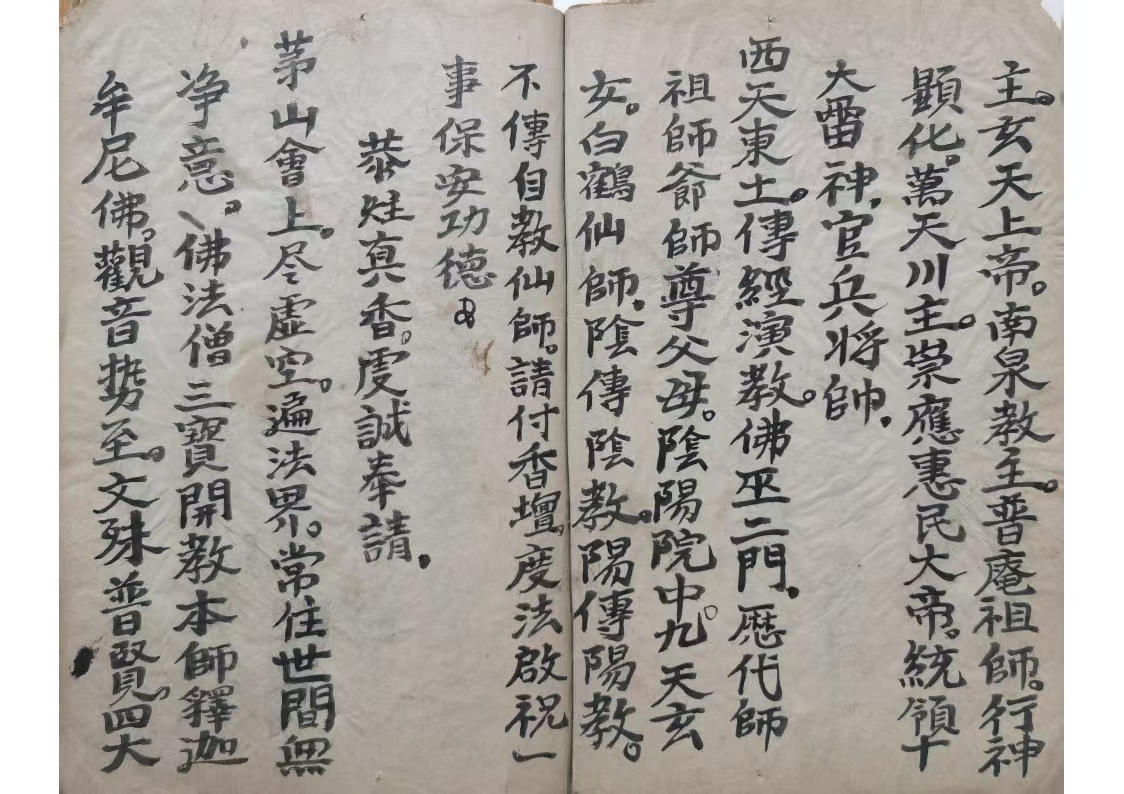 主。玄天上帝。南泉教主。普庵祖師。行神
顯化。萬天川主。崇應惠民大帝。統領十
大雷神，官兵将帥，
西天東土。傳經演教。佛巫二門，歷代師
祖師爺師尊父母。陰陽院中。九天玄
女。白鶴仙師，陰傳陰教。陽傳陽教。
不傳自教仙師。請付香壇。度法啟祝一
事保安功德
恭炷真香。虔誠奉請，
茅山會上。尽虛空。遍法界。常住世間無
净意。佛法僧三寶開教本師釋迦
牟尼佛。觀音势至。文殊普賢。四大